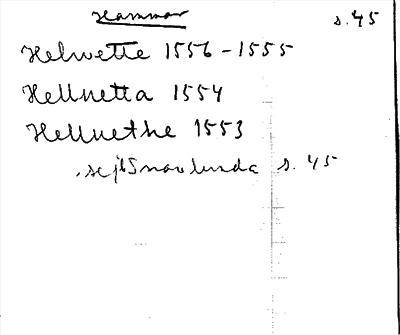 Hammar s. 45
Helvette 1556-1555
Hellnetta 1554
Hellnethe 1553
, se jb Snavlunda s. 45